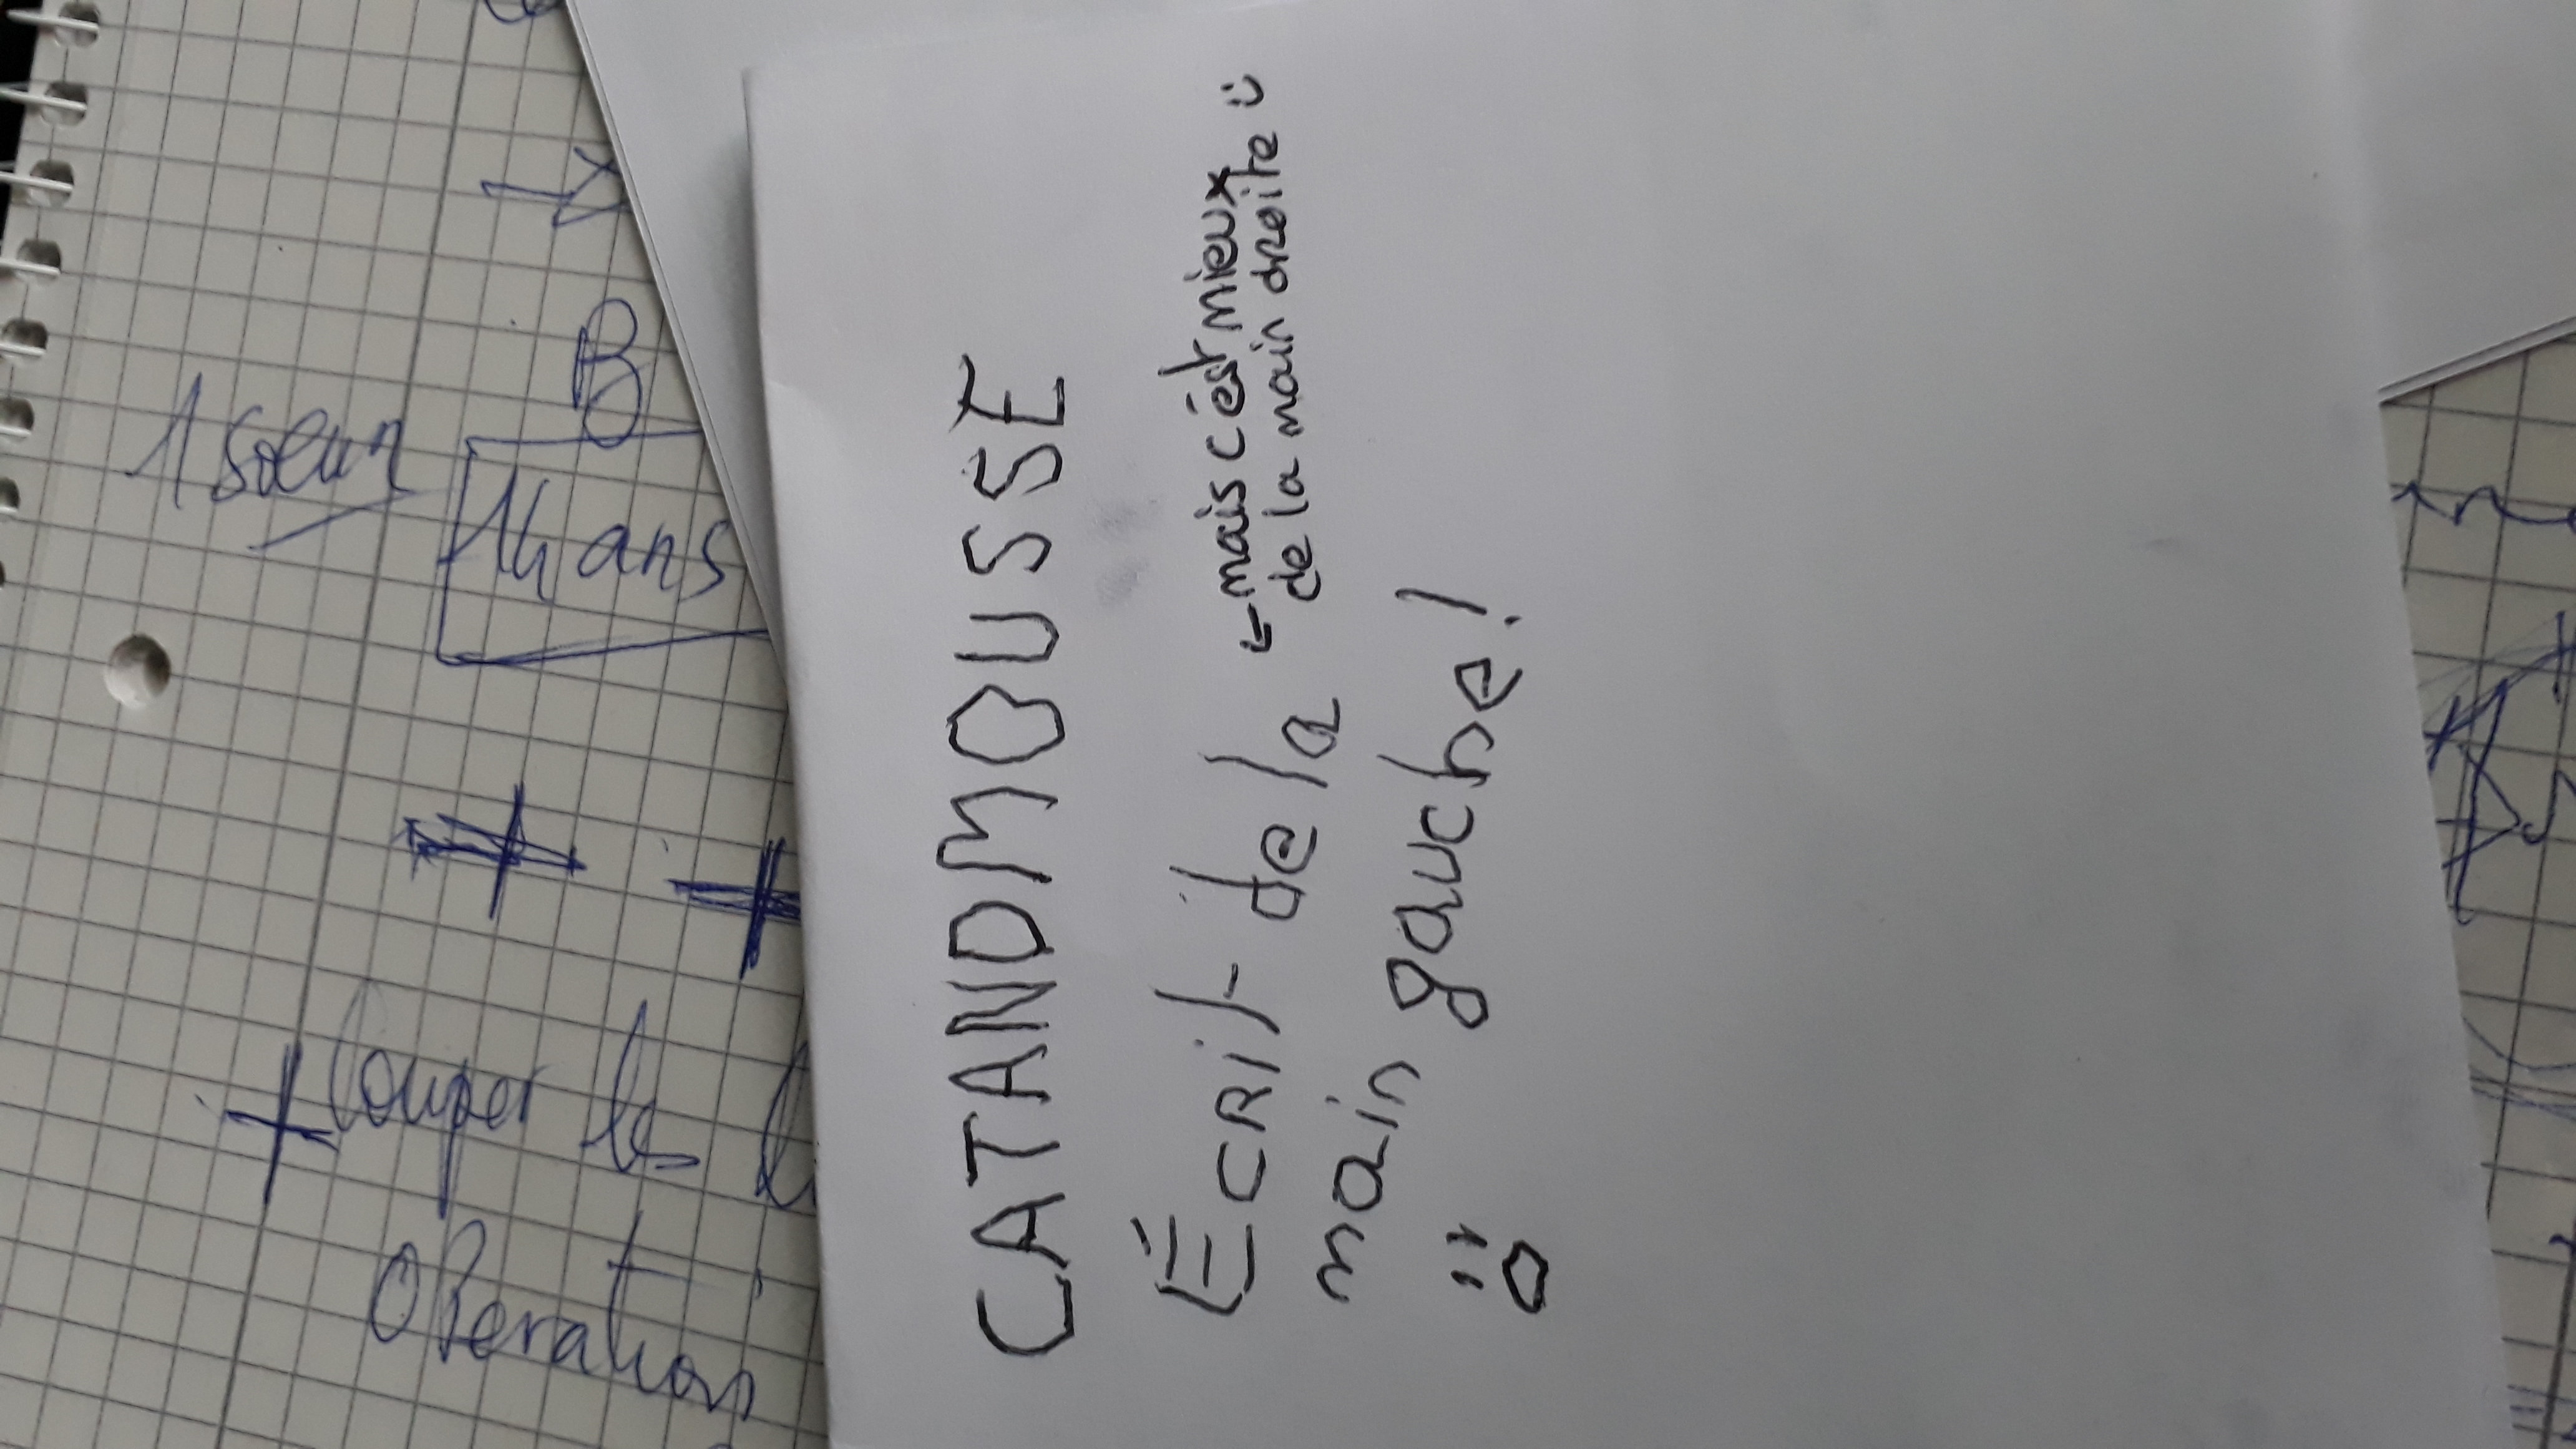 CATANDMOUSSE
Écrit de la
main gauche !
← mais c'est mieux
de la main droite :)
1 soeur
B
14 ans
+ couper les
operation